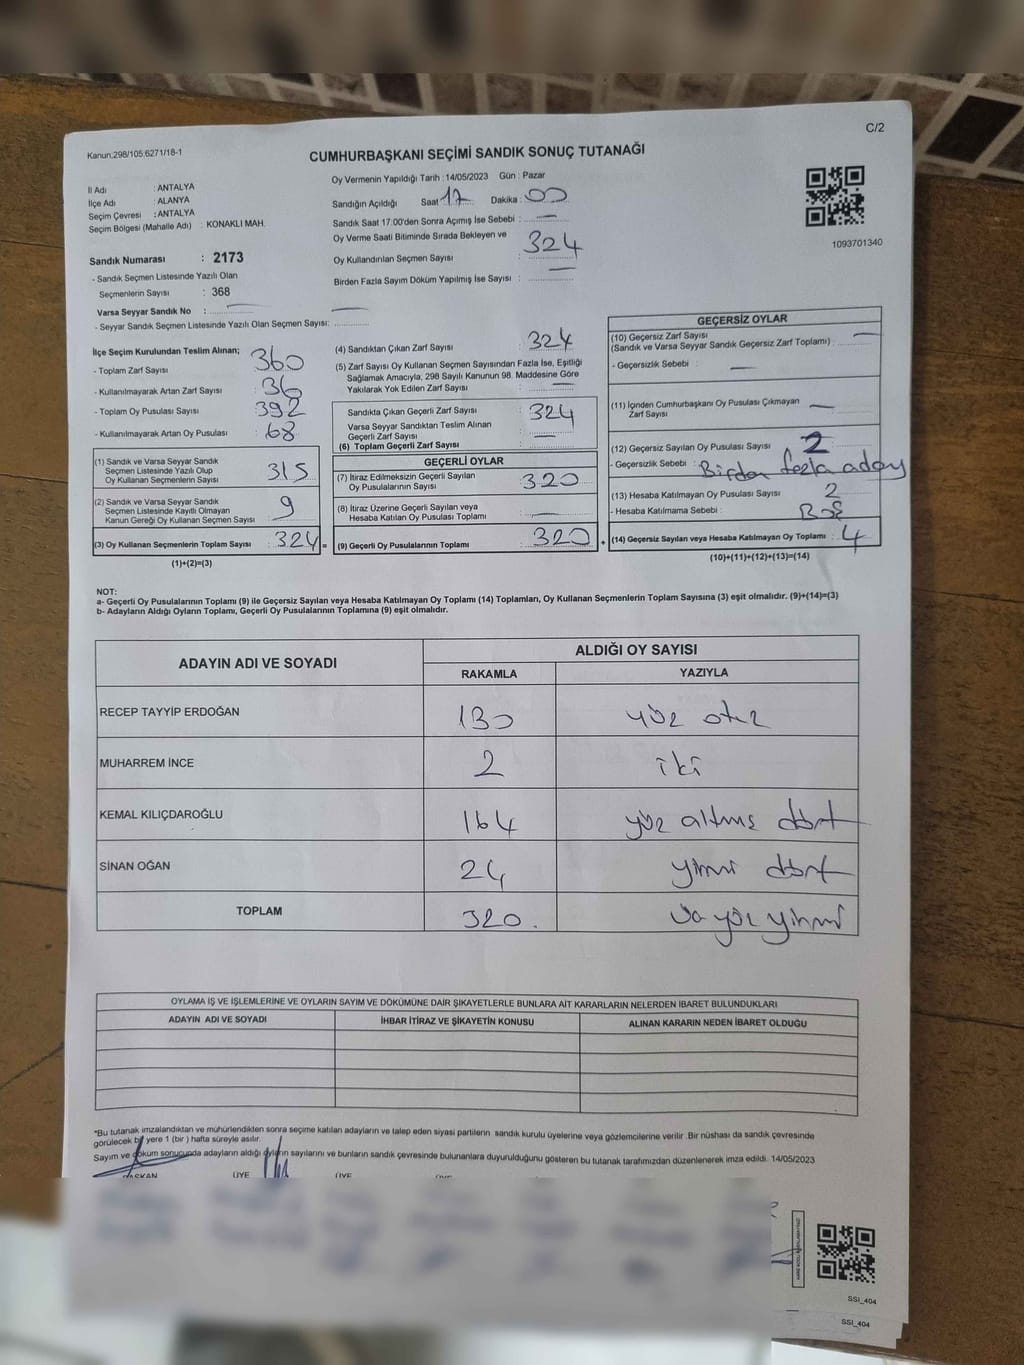 C/2
Kanun.298/105;6271/18-1
CUMHURBAŞKANI SEÇİMİ SANDIK SONUÇ TUTANAĞI
İl Adı : ANTALYA
İlçe Adı : ALANYA
Seçim Çevresi : ANTALYA
Seçim Bölgesi (Mahalle Adı) : KONAKLI MAH.
Sandık Numarası : 2173
- Sandık Seçmen Listesinde Yazılı Olan
Seçmenlerin Sayısı : 368
Varsa Seyyar Sandık No : —
- Seyyar Sandık Seçmen Listesinde Yazılı Olan Seçmen Sayısı: —
Oy Vermenin Yapıldığı Tarih : 14/05/2023 Gün : Pazar
Sandığın Açıldığı Saat 17 Dakika : 00
Sandık Saat 17:00'den Sonra Açımış İse Sebebi : —
Oy Verme Saati Bitiminde Sırada Bekleyen ve
Oy Kullandırılan Seçmen Sayısı : 324
Birden Fazla Sayım Döküm Yapılmış İse Sayısı : —
1093701340
İlçe Seçim Kurulundan Teslim Alınan;
- Toplam Zarf Sayısı 360
- Kullanılmayarak Artan Zarf Sayısı 36
- Toplam Oy Pusulası Sayısı 392
- Kullanılmayarak Artan Oy Pusulası : 68
(1) Sandık ve Varsa Seyyar Sandık
Seçmen Listesinde Yazılı Olup
Oy Kullanan Seçmenlerin Sayısı 315
(2) Sandık ve Varsa Seyyar Sandık
Seçmen Listesinde Kayıtlı Olmayan
Kanun Gereği Oy Kullanan Seçmen Sayısı 9
(3) Oy Kullanan Seçmenlerin Toplam Sayısı : 324 =
(1)+(2)=(3)
(4) Sandıktan Çıkan Zarf Sayısı : 324
(5) Zarf Sayısı Oy Kullanan Seçmen Sayısından Fazla İse, Eşitliği
Sağlamak Amacıyla, 298 Sayılı Kanunun 98. Maddesine Göre
Yakılarak Yok Edilen Zarf Sayısı : —
Sandıkta Çıkan Geçerli Zarf Sayısı : 324
Varsa Seyyar Sandıktan Teslim Alınan
Geçerli Zarf Sayısı : —
(6) Toplam Geçerli Zarf Sayısı :
GEÇERLİ OYLAR
(7) İtiraz Edilmeksizin Geçerli Sayılan
Oy Pusulalarının Sayısı : 320
(8) İtiraz Üzerine Geçerli Sayılan veya
Hesaba Katılan Oy Pusulası Toplamı : —
(9) Geçerli Oy Pusulalarının Toplamı 320 +
GEÇERSİZ OYLAR
(10) Geçersiz Zarf Sayısı
(Sandık ve Varsa Seyyar Sandık Geçersiz Zarf Toplamı) : —
- Geçersizlik Sebebi : —
(11) İçinden Cumhurbaşkanı Oy Pusulası Çıkmayan
Zarf Sayısı —
(12) Geçersiz Sayılan Oy Pusulası Sayısı : 2
- Geçersizlik Sebebi : Birden fazla aday
(13) Hesaba Katılmayan Oy Pusulası Sayısı : 2
- Hesaba Katılmama Sebebi : Boş
(14) Geçersiz Sayılan veya Hesaba Katılmayan Oy Toplamı : 4
(10)+(11)+(12)+(13)=(14)
NOT:
a- Geçerli Oy Pusulalarının Toplamı (9) ile Geçersiz Sayılan veya Hesaba Katılmayan Oy Toplamı (14) Toplamları, Oy Kullanan Seçmenlerin Toplam Sayısına (3) eşit olmalıdır. (9)+(14)=(3)
b- Adayların Aldığı Oyların Toplamı, Geçerli Oy Pusulalarının Toplamına (9) eşit olmalıdır.
ADAYIN ADI VE SOYADI ALDIĞI OY SAYISI
RAKAMLA YAZIYLA
RECEP TAYYİP ERDOĞAN 130 yüz otuz
MUHARREM İNCE 2 iki
KEMAL KILIÇDAROĞLU 164 yüz altmış dört
SİNAN OĞAN 24 yirmi dört
TOPLAM 320. üç yüz yirmi
OYLAMA İŞ VE İŞLEMLERİNE VE OYLARIN SAYIM VE DÖKÜMÜNE DAİR ŞİKAYETLERLE BUNLARA AİT KARARLARIN NELERDEN İBARET BULUNDUKLARI
ADAYIN ADI VE SOYADI İHBAR İTİRAZ VE ŞİKAYETİN KONUSU ALINAN KARARIN NEDEN İBARET OLDUĞU
*Bu tutanak imzalandıktan ve mühürlendikten sonra seçime katılan adayların ve talep eden siyasi partilerin sandık kurulu üyelerine veya gözlemcilerine verilir. Bir nüshası da sandık çevresinde
görülecek bir yere 1 (bir ) hafta süreyle asılır.
Sayım ve döküm sonucunda adayların aldığı oyların sayılarını ve bunların sandık çevresinde bulunanlara duyurulduğunu gösteren bu tutanak tarafımızdan düzenlenerek imza edildi. 14/05/2023
BAŞKAN ÜYE ÜYE ÜYE
SSI_404
SSI_404